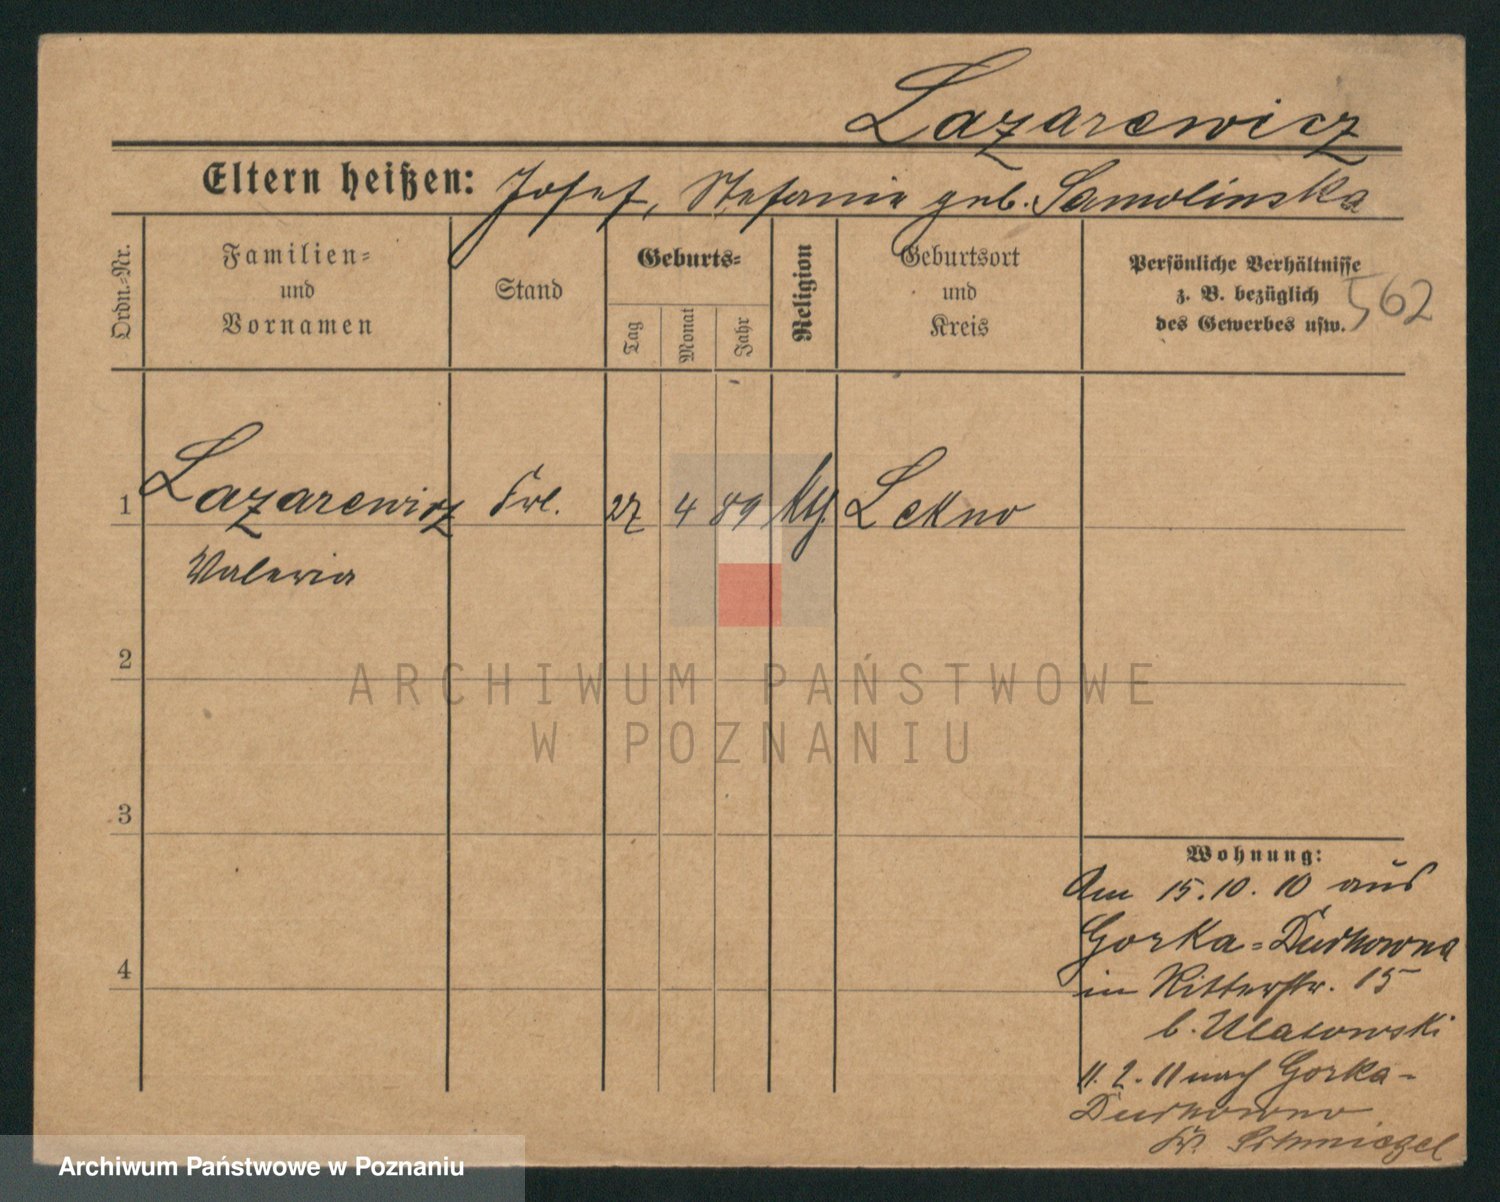 Lazarewicz
Eltern heißen: Josef, Stefanie geb. Samolinska
Ordn.-Nr.
Familien-
und
Vornamen
Stand
Geburts-
Tag
Monat
Jahr
Religion
Geburtsort
und
Kreis
Persönliche Verhältnisse
z. B. bezüglich
des Gewerbes usw.
562
1 Lazarewicz Frl. 27 4 89 kth. Lekno
Valeria
2
ARCHIWUM PAŃSTWOWE
W POZNANIU
3
Wohnung:
Am 15.10.10 aus
Gorka-Duchowna
in Ritterstr. 15
b.
4
11.2.11 nach Gorka-
Duchowno
Kr. Schmiegel
Archiwum Państwowe w Poznaniu